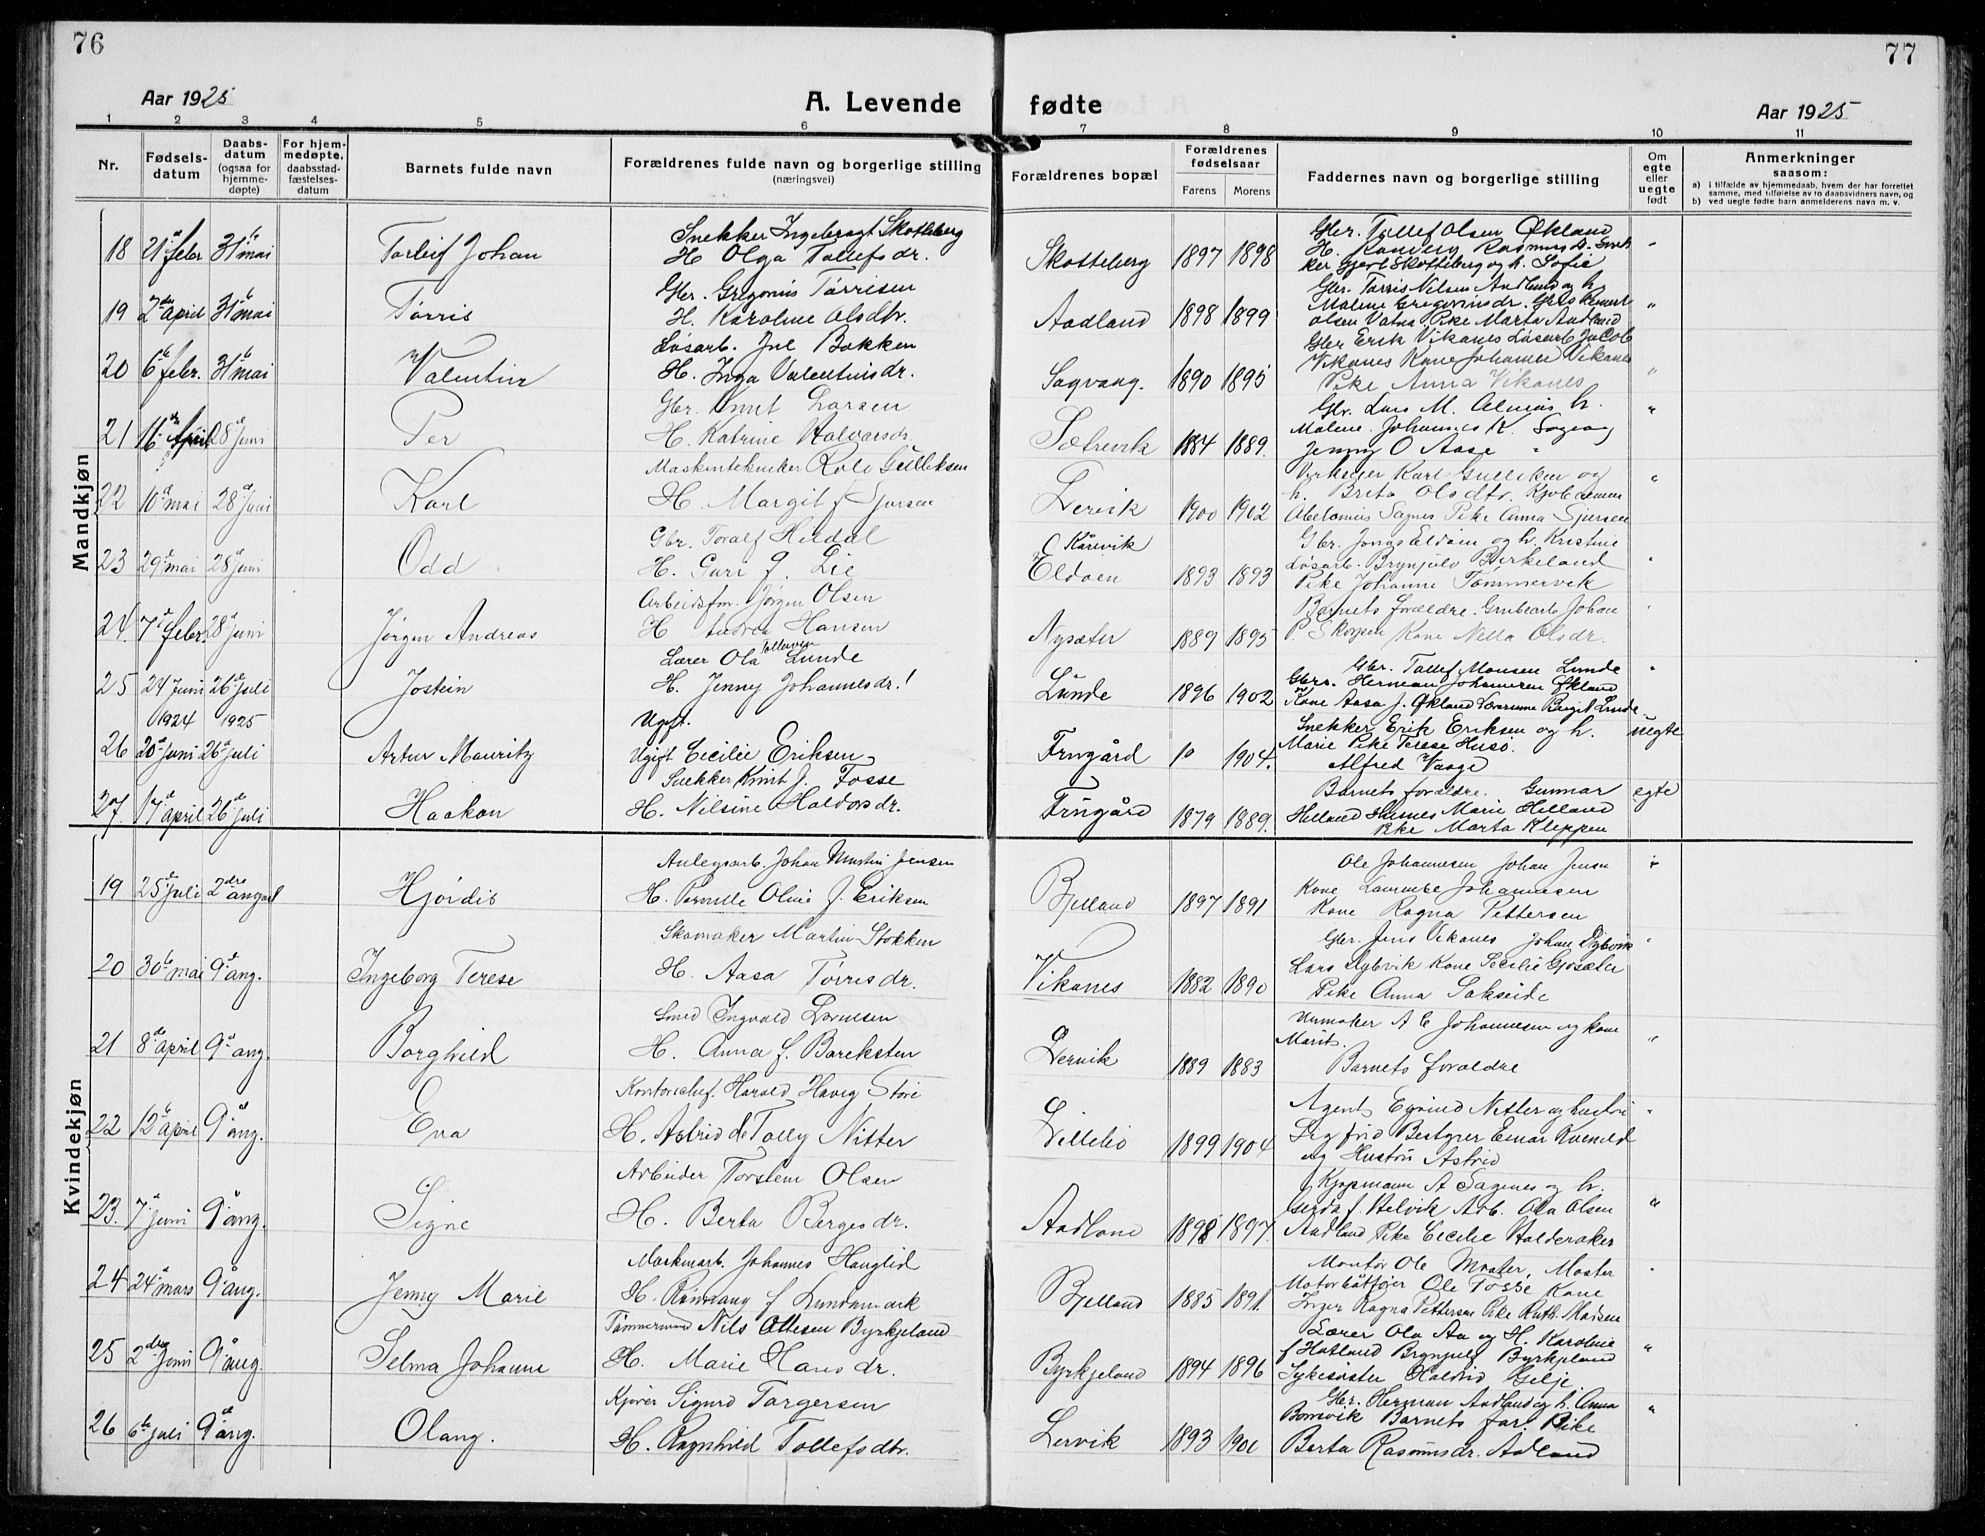 76
77
Aar 1925
A. Levende fødte
Aar 1925
1 2 3 4 5 6 7 8 9 10 11
Nr.
Fødsels-
datum
Daabs-
datum
(ogsaa for
hjemme-
døpte)
For hjem-
medøpte,
daabsstad-
fæstelses-
datum
Barnets fulde navn
Forældrenes fulde navn og borgerlige stilling
(næringsvei)
Forældrenes bopæl
Forældrenes
fødselsaar
Farens Morens
Faddernes navn og borgerlige stilling
Om
egte
eller
uegte
født
Anmerkninger
saasom:
a) i tilfælde av hjemmedaab, hvem der har forrettet
samme, med tilføielse av to daabsvidners navn, og
b) ved uegte fødte barn anmelderens navn m. v.
Mandkjøn
Snekker Ingebrigt Skotteberg
18 21 febr 31 mai Torleif Johan H Olga Tollefsdr. Skotteberg 1897 1898
Gbr. Tollef Olsen Økland
H. Ranveig Rasmusdr. Snek
ker Gjert Skotteberg og h. Sofie
Gbr. Gregorius Tørrisen
19 2 april 31 mai Tørris H. Karoline Olsdtr. Aadland 1898 1899 "
Gbr. Tørris Nilsen Aadland og h
Malene Gregoriusdr. Gbr. Klement
Olsen Vatna. Pike Marta Aadland
Løsarb. Joe Bakken
20 6 febr. 31 mai Valentin H. Inga Valentinsdr. Sagvang. 1890 1895 "
Gbr Erik Vikanes Løsarb Jacob
Vikanes Kone Johanne Vikanes
Pike Anna Vikanes
Gbr. Knut Larsen
21 16 April 28 juni Per H. Katrine Halvorsdr. Sætrevik 1884 1889. "
Gbr. Lars M. Almås h.
Malene. Johannes K. Sagvag
Jenny O Aase "
Maskintekniker Rolv Gulliksen
22 10 mai 28 juni Karl H. Margit f Sjursen Lervik 1900 1902 "
Verkseier Karl Gulliksen og
h. Brita Olsdtr. Kjøbmenn
Abelonius Sagnes Pike Anna Sjursen
Gbr. Toralf Heidal
Kårevik
23 29 mai 28 juni Odd H. Guri J. Lie Eldøen 1893 1893
Gbr. Jonas Eldøen og h. Kristine
Løsarb. Brynjulv Børkeland
Pike Johanne Tømmervik
Arbeidsfm. Jørgen Olsen
24. 7 febr. 28 juni Jørgen Andreas H Andrea Hansen Nysæter 1889 1895
Barnets forældre. Grubearb Johan
P. Skorpen Kone Nella Olsdr.
Lærer Ola Tollevsen Lunde
25 24 juni 1924 26 juli 1925 Jostein H. Jenny Johannesdr.! Lunde 1896 1902 "
Gbr. Tollef Monsen Lunde
Gbr. Herman Johannesen Økland
Kone Aasa J. Økland Lærerinne Bergit Lunde
Ugift.
26 20 juni 26 juli Artur Mauritz Ugift Cecilie Eriksen Frugård 1904. uegte
Snekker Erik Eriksen og h.
Marie Pike Terese Husø.
Alfred Vaage
Snekker Knut J. Fosse
27. 17 april 26 juli Haakon H. Nilsine Haldorsdr. Frugård 1879 1889. egte
Barnets forældre. Gunnar
Helland Husnes Marie Helland
Pike Marta Kleppen
Kvindekjøn
Anlegsarb. Johan Martin Jensen
19 25 juli 2 august Hjørdis H. Pernille Oline J. Eriksen Bjelland 1897 1891
Ole Johannesen Johan Jensen
Kone Laurentse Johannesen
Kone Ragna Pettersen
Skomaker Martin Stokken
20 30 mai 9 aug. Ingeborg Terese H. Aasa Tørrisdr. Vikanes 1882 1890
Gbr. Jens Vikanes Johan Dybvik
Lars Dybvik Kone Secilie Gjøsæter
Pike Anna Sakseide
Smed Ingvald Larsen
21 8 april 9 aug. Borghild H. Anna f. Bareksten Lervik 1889 1883 "
Urmaker A E Johannesen og kone
Marit.
Barnets forældre
Kontorchef. Harald Havig Støre
22 12 april 9 aug. Eva H. Astrid de Tolly Nitter Lillebø 1899 1904
Agent Eyvind Nitter og hustru
Sigfrid Bestyrer Einar Kvenild
og Hustru Astrid
Arbeider Torstein Olsen
23. 7 juni 9 aug. Signe H. Berta Bergesdr. Aadland 1898 1897. "
Kjøpmann A Sagenes og h.
Gerda f. Helvik Arb. Ola Olsen
Aadland Pike Cecilie Halderaker
Maskinarb. Johannes Hauglid
24 24 mars 9 aug. Jenny Marie H. Rønnaug f Lundamark Bjelland 1885 1891.
Montør Ole Moster, Moster
Motorbåtfører Ole Fosse Kone
Inger Ragna Pettersen Pike Ruth Madsen
Tømmermand Nils Ottesen Byrkjeland
25 2 juni 9 aug. Selma Johanne H. Marie Hansdr. Byrkjeland 1894 1896 "
Lærer Ola Aa og H. Karoline
f Hatland Brynjulf Byrkjeland
Sykesøster Haldrid Gilje
Kjører Sigurd Torgersen
26 6 juli 9 aug. Olaug. H. Ragnhild Tollefsdtr. Lervik 1893 1901 "
Gbr. Herman Aadland og h. Anna
Børøvik Barnets far. Pike
Berta Rasmusdr. Aadland